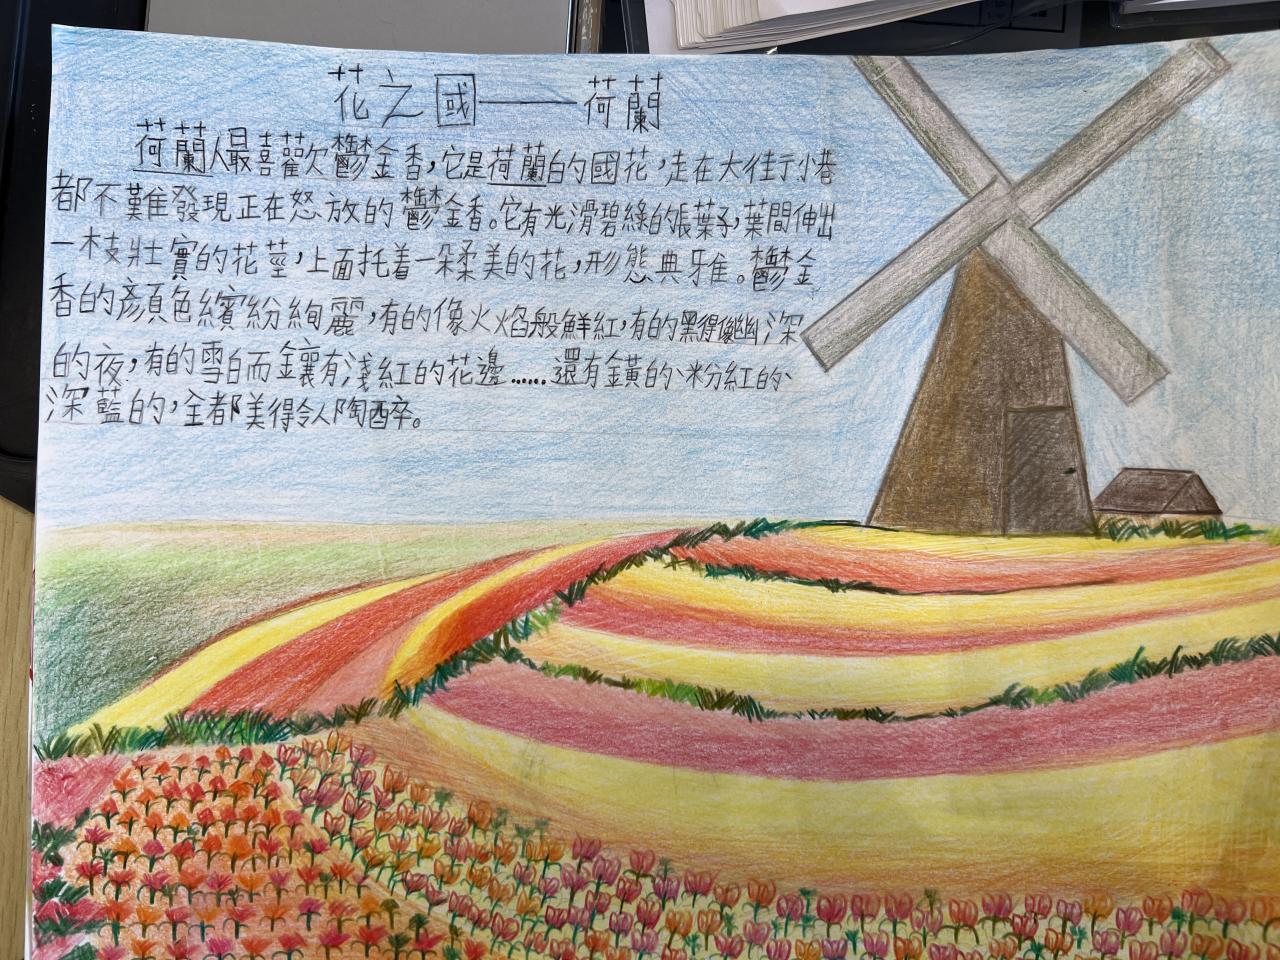 花之國——荷蘭
荷蘭人最喜歡鬱金香，它是荷蘭的國花，走在大街小巷
都不難發現正在怒放的鬱金香。它有光滑碧綠的長葉子，葉間伸出
一枝壯實的花莖，上面托着一朵柔美的花，形態典雅。鬱金
香的顏色繽紛絢麗，有的像火焰般鮮紅，有的黑得像幽深
的夜，有的雪白而鑲有淺紅的花邊……還有鐄黃的、粉紅的、
深藍的，全都美得令人陶醉。